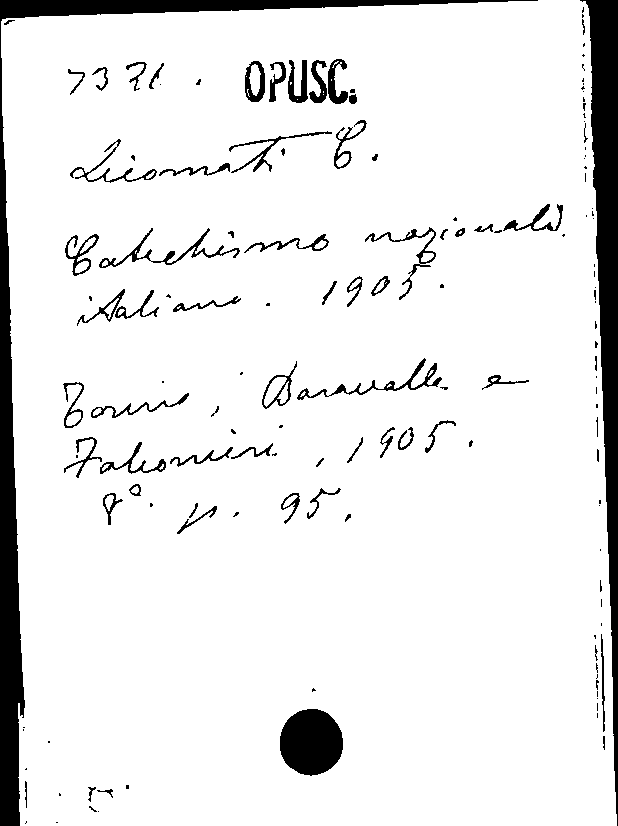 7371. OPUSC.
Licomati C.
Catechismo nazionale
italiano. 1905.
Torino, Baravalle e
Falconieri, 1905.
8°. p. 95.